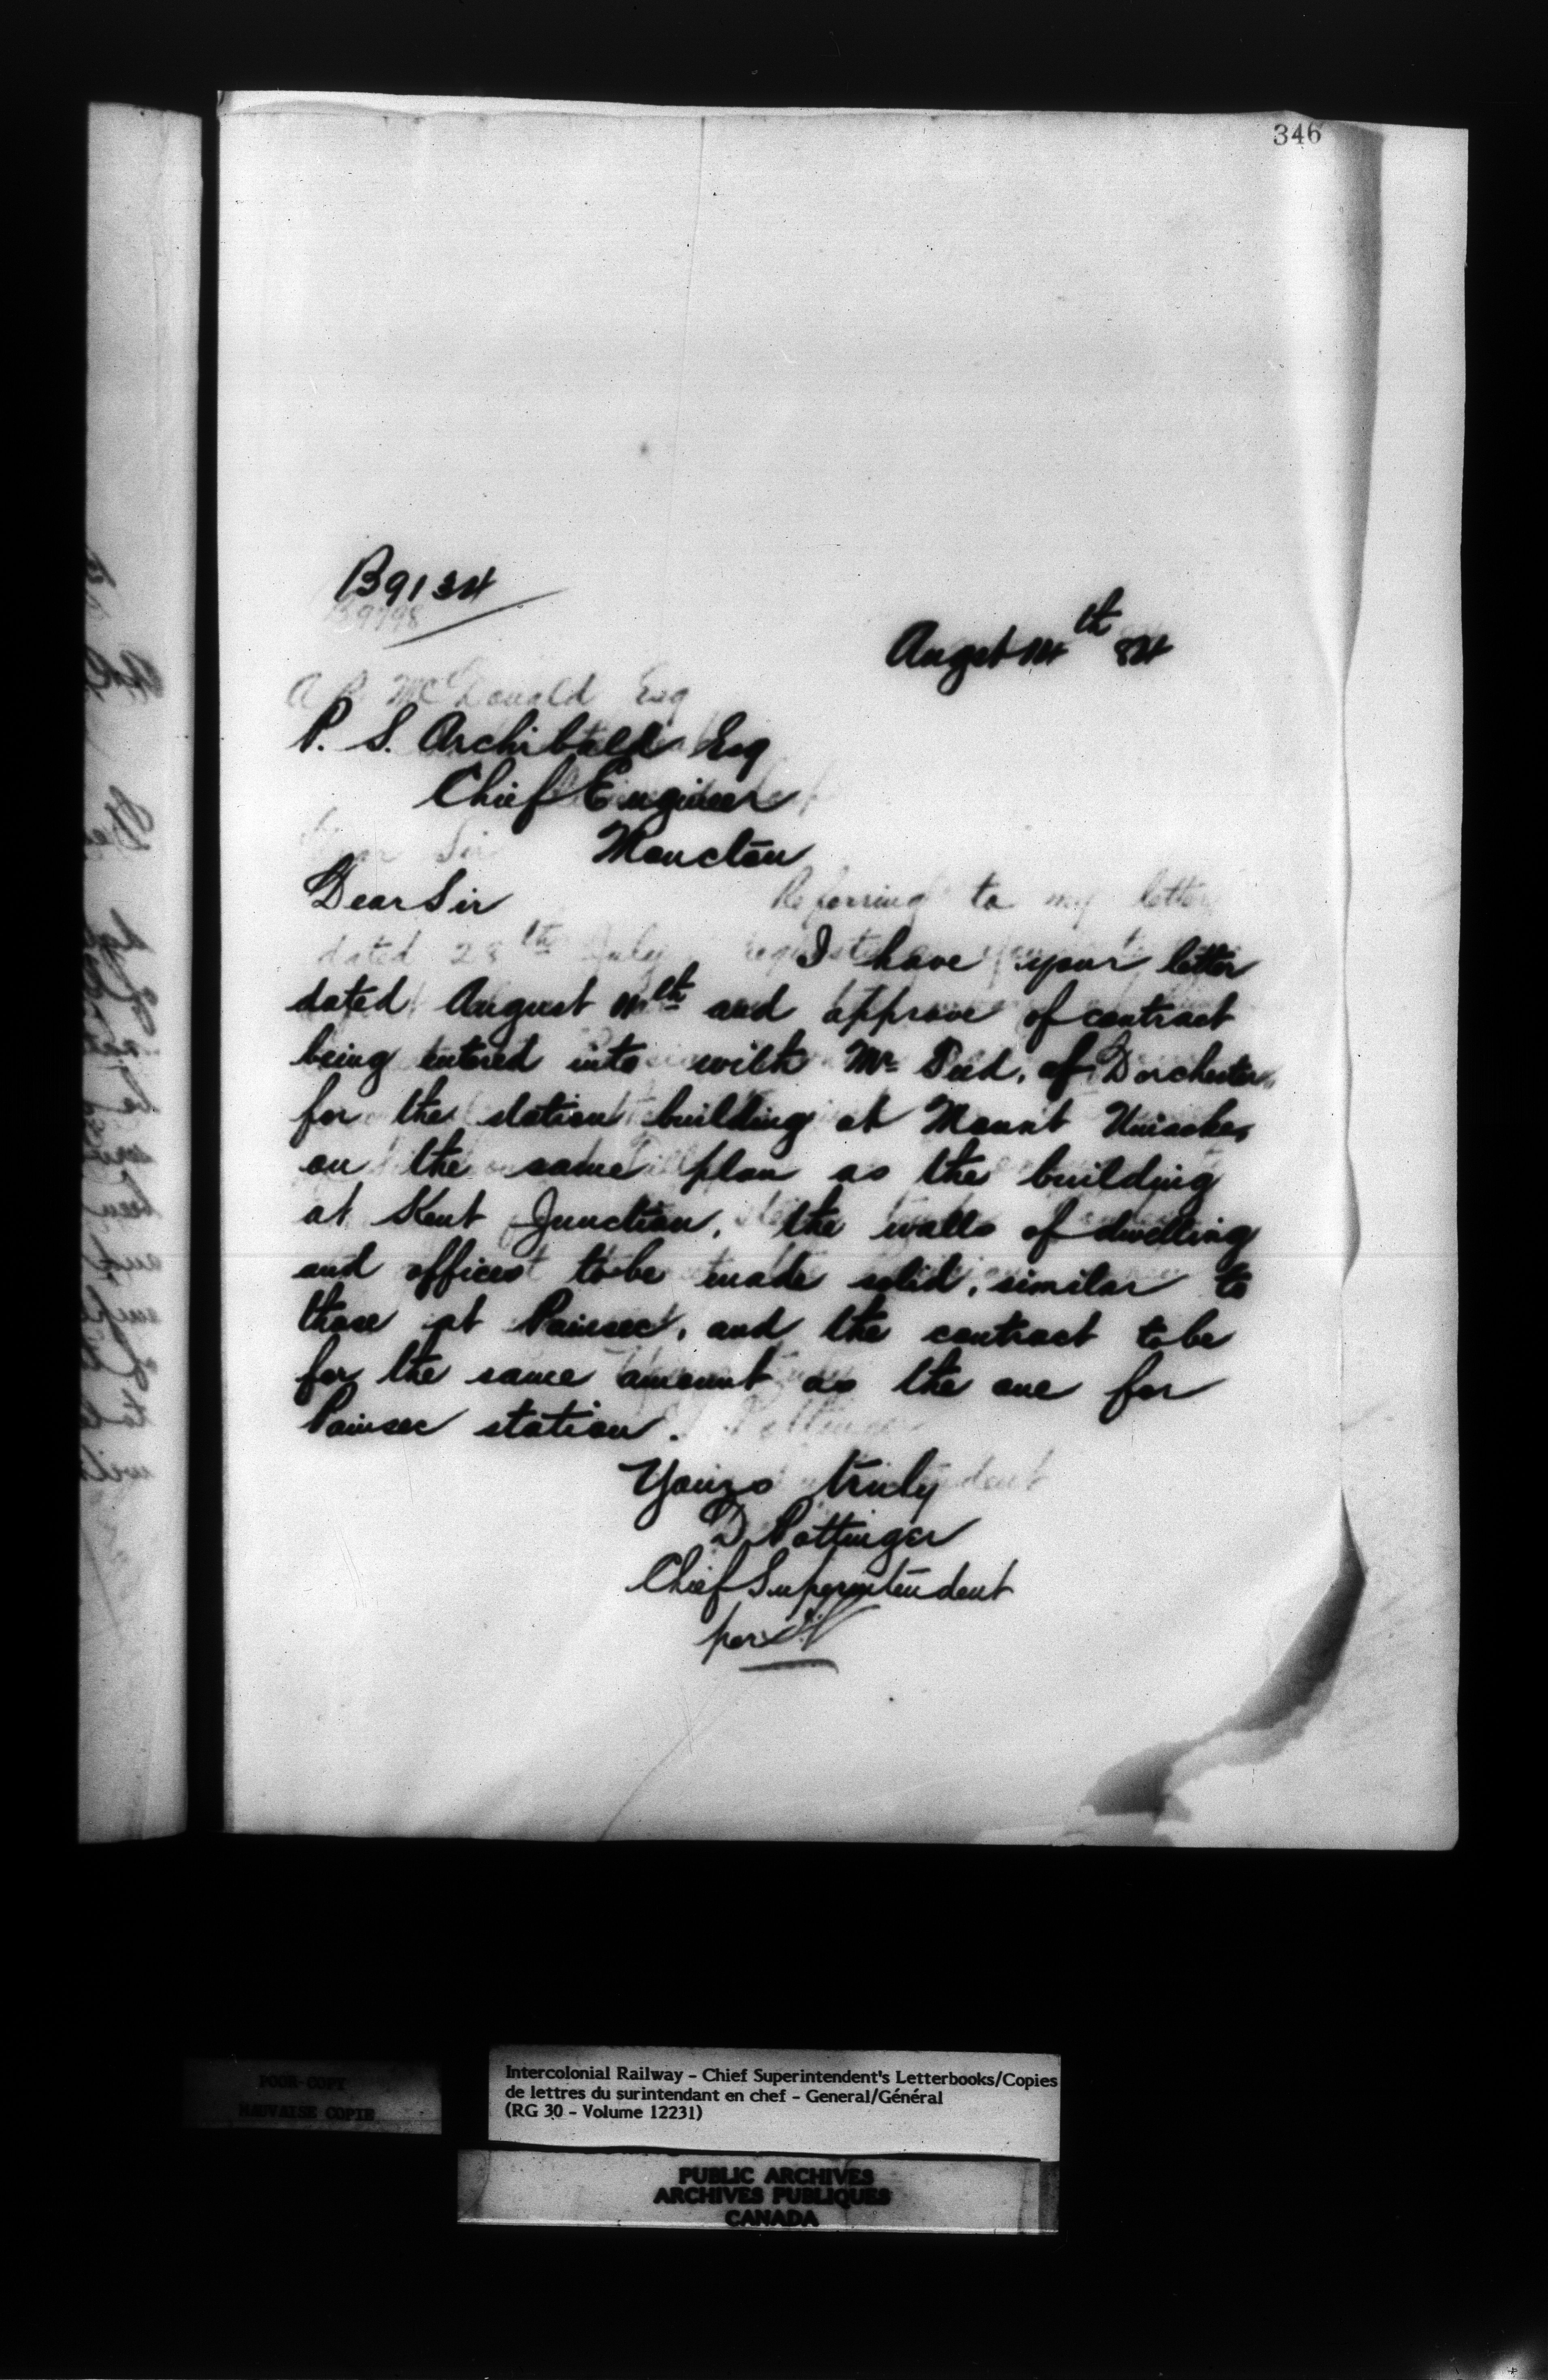 346
B9134
B9798
Augst 14th 84
A R McDonald Esq
P. S. Archibald Esq
Chief Engineer
Moncton
Dear Sir
Referring to my letter
dated 28th July
I have your letter
dated August 11th and approve of contract
being entered into with Mr of Dorchester
for the station building at Mount Uniacke,
on the same plan as the building
at Kent Junction, the walls of dwelling
and offices to be made solid, similar to
those at Painsec, and the contract to be
for the same amount as the one for
Painsec station.
Yours truly
D Pottinger
Chief Superintendent
per
POOR COPY
MAUVAISE COPIE
Intercolonial Railway - Chief Superintendent's Letterbooks/Copies
de lettres du surintendant en chef - General/Général
(RG 30 - Volume 12231)
PUBLIC ARCHIVES
ARCHIVES PUBLIQUES
CANADA